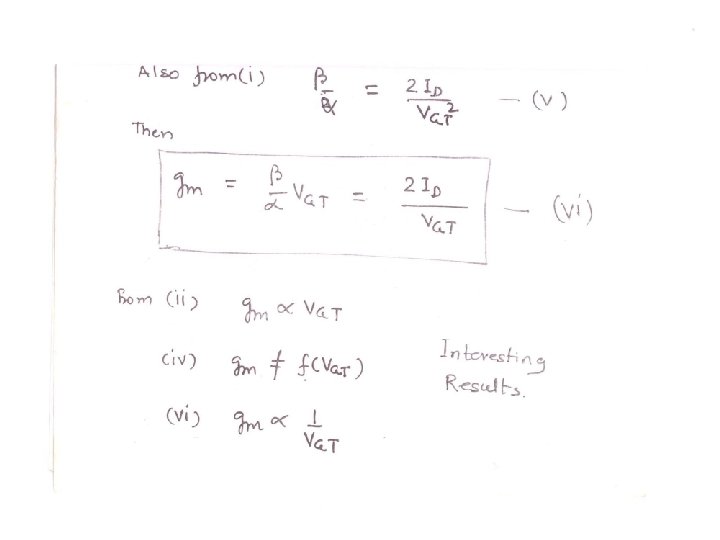 Also from (i) β/α = 2 I_D / V_GT² — (v)
Then
g_m = β/α V_GT = 2 I_D / V_GT — (vi)
from (ii) g_m ∝ V_GT
(iv) g_m ≠ f(V_GT)
(vi) g_m ∝ 1/V_GT
Interesting
Results.